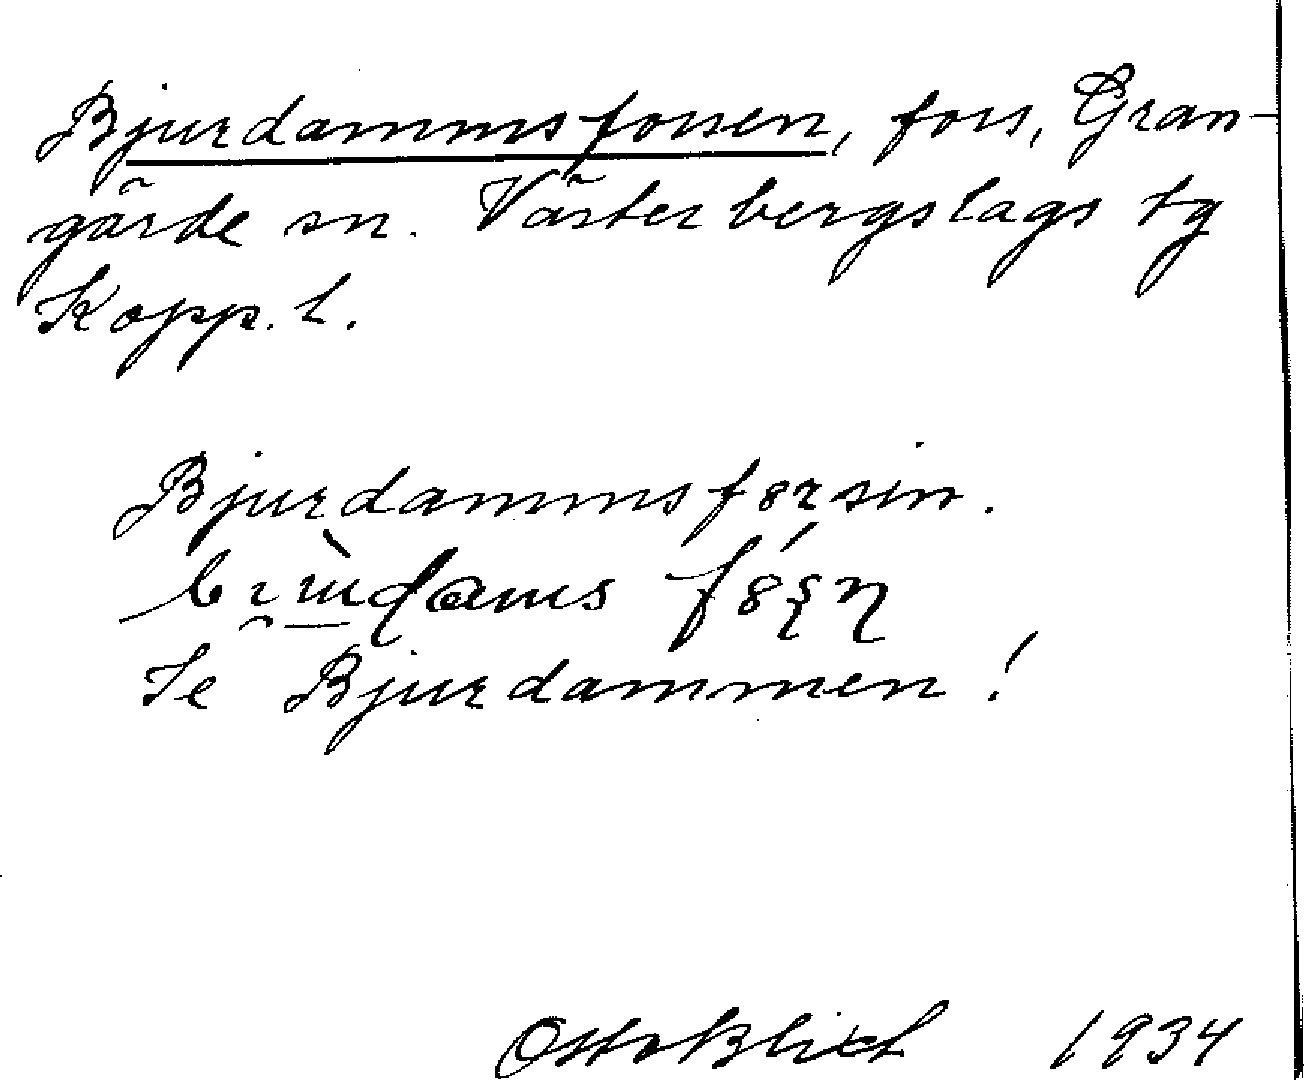 Bjurdammsforsen, fors, Gran-
gärde sn. Västerbergslags tg
Kopp. l.
Bjurdammsförsin.
Se Bjurdammen!
Otto Blixt 1934